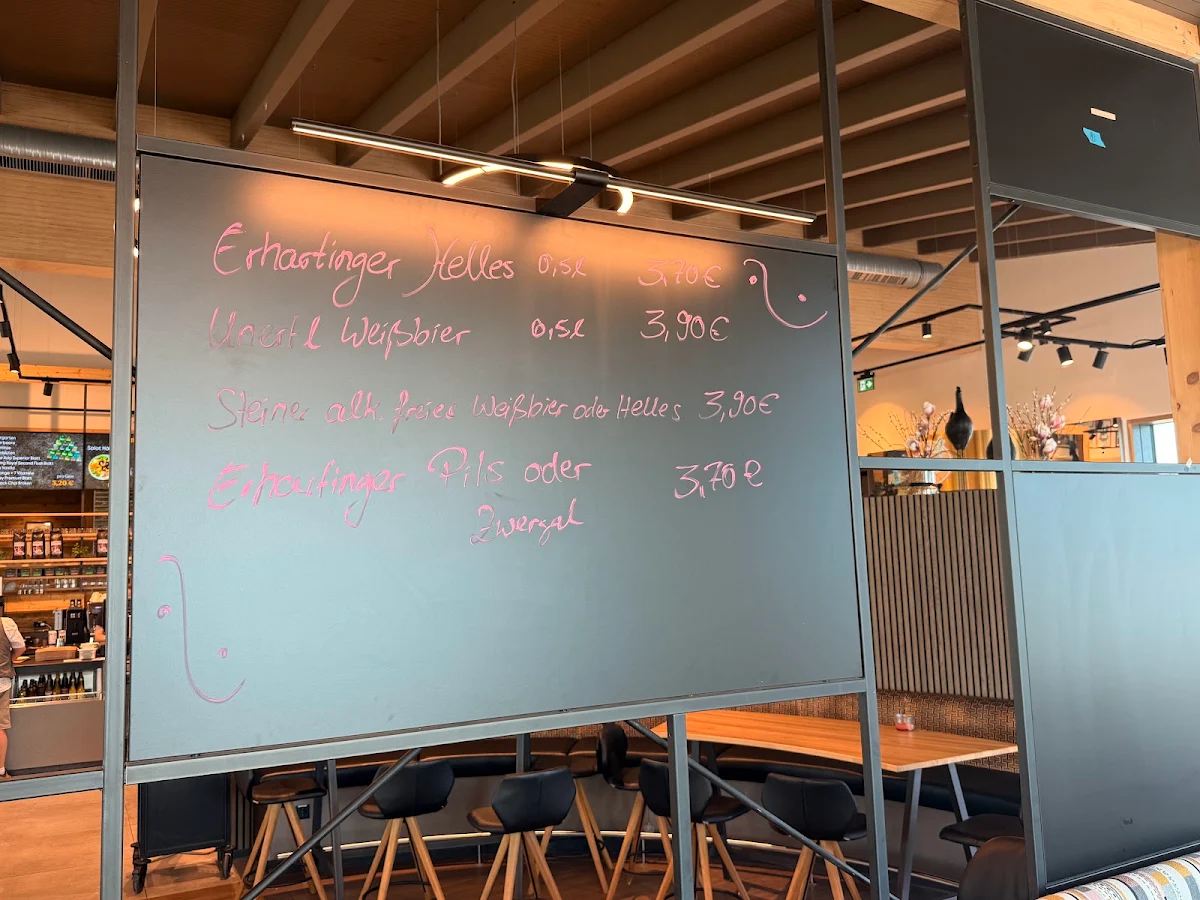 Erhartinger Helles 0,5l 3,70€
Unertl Weißbier 0,5l 3,90€
Steiner alk. freies Weißbier oder Helles 3,90€
Erhartinger Pils oder 3,70€
Zwergal
3,20 €